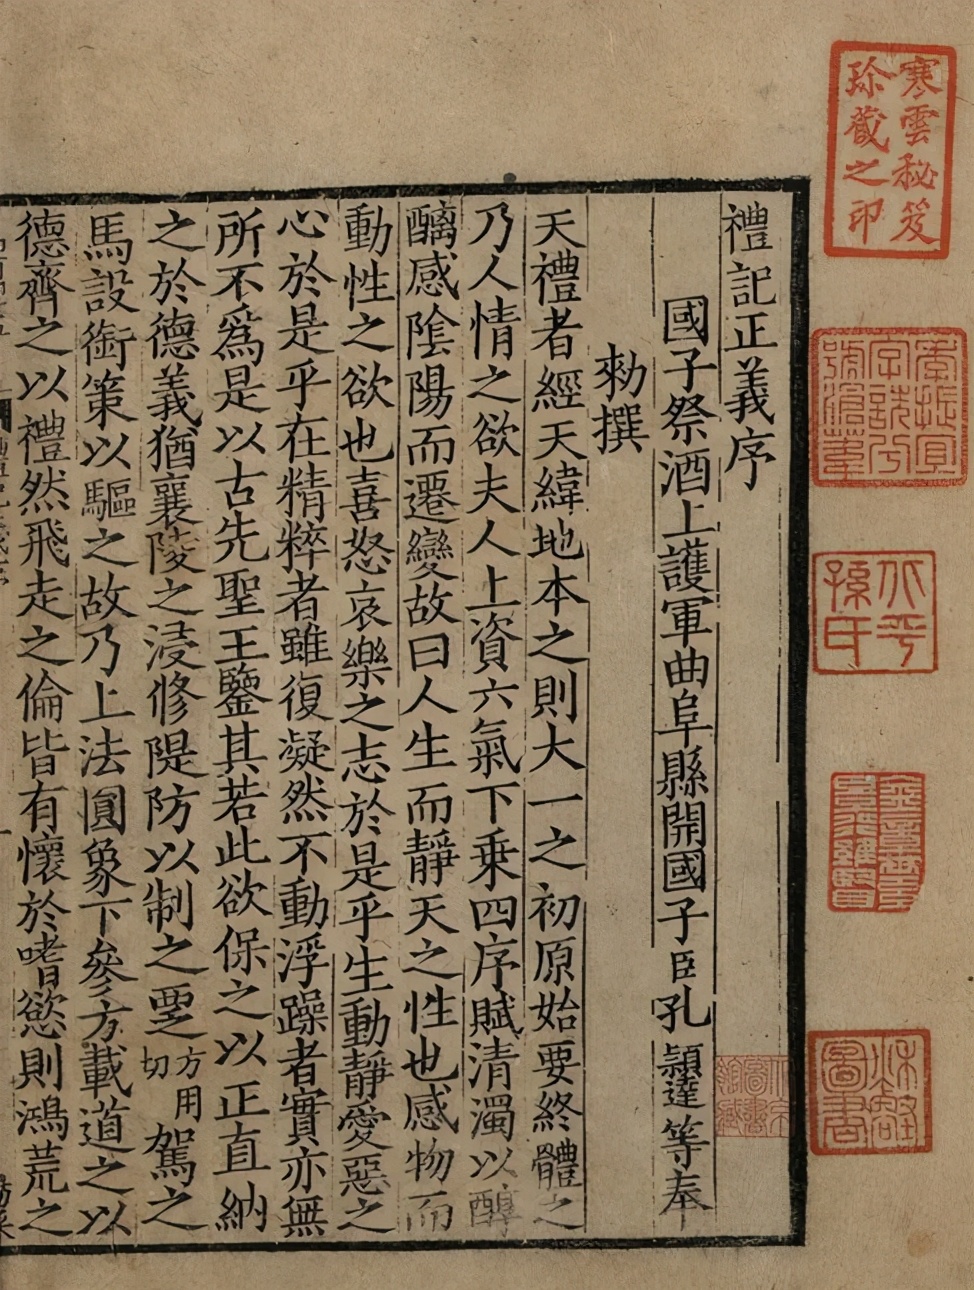 寒雲秘笈
珍藏之印
季振宜
字詵兮
號滄葦
北平
孫氏
秋壑
圖書
禮記正義序
國子祭酒上護軍曲阜縣開國子臣孔穎達等奉
勑撰
天禮者經天緯地本之則大一之初原始要終體之
乃人情之欲夫人上資六氣下乗四序賦清濁以醇
醨感隂陽而遷變故曰人生而靜天之性也感物而
動性之欲也喜怒哀樂之志於是乎生動靜愛惡之
心於是乎在精粹者雖復凝然不動浮躁者實亦無
所不爲是以古先聖王鑒其若此欲保之以正直納
之於德義猶襄陵之浸修隄防以制之覂方用切駕之
馬設銜策以驅之故乃上法圓象下參方載道之以
德齊之以禮然飛走之倫皆有懷於嗜慾則鴻荒之